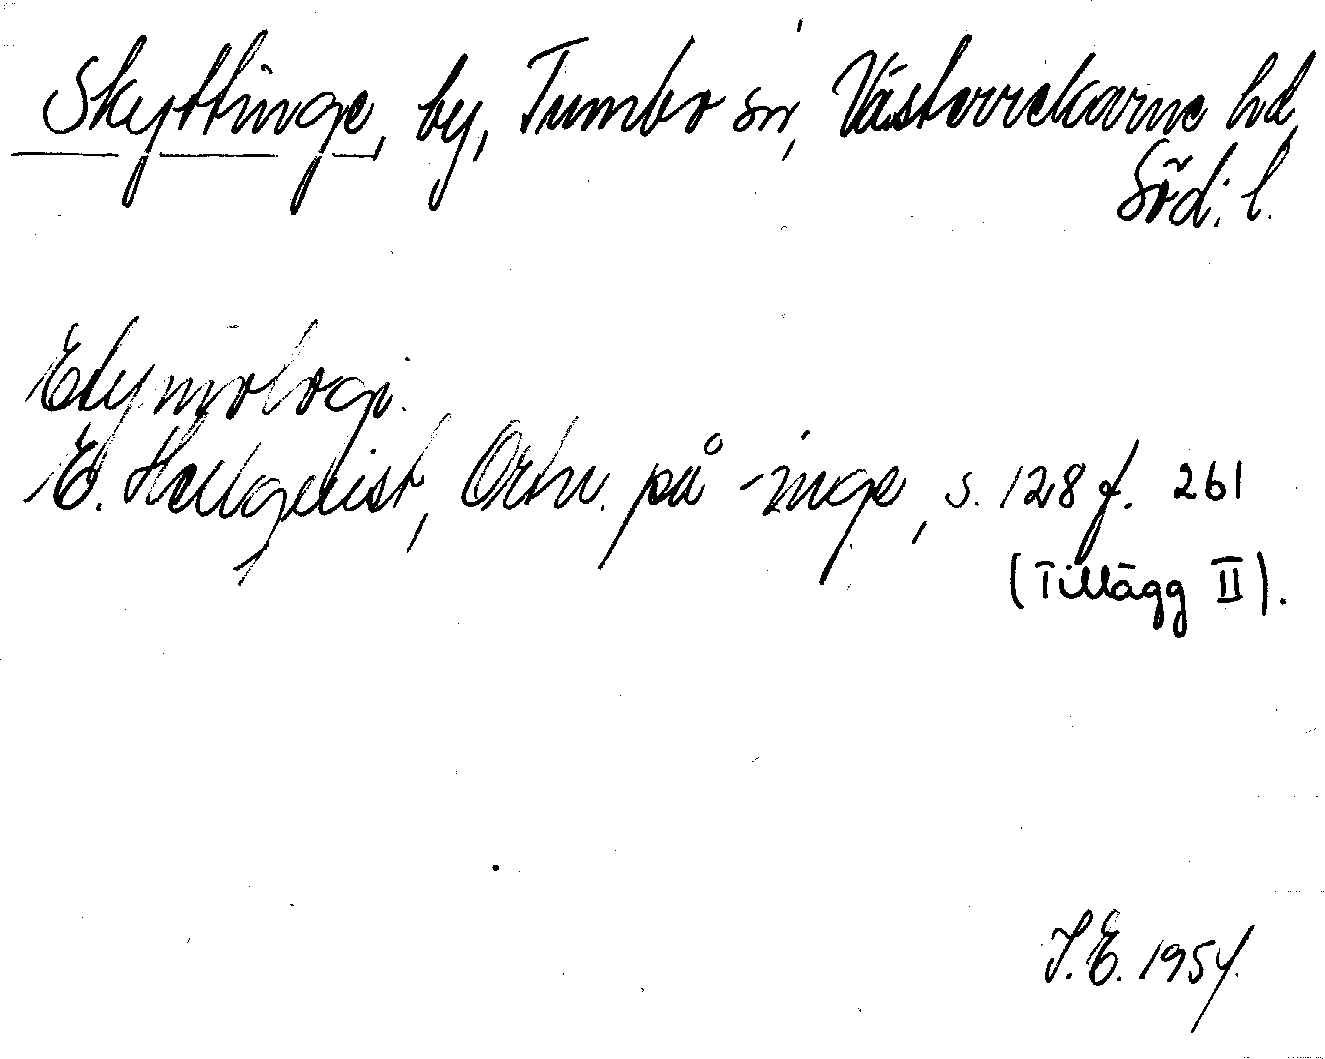 Skyttinge, by, Tumbo sn, Västerrekarne hd,
Söd. l.
Etymologi.
E. Hellquist, Ortn. på -inge, s. 128 f. 261
(Tillägg II).
I.E. 1954.